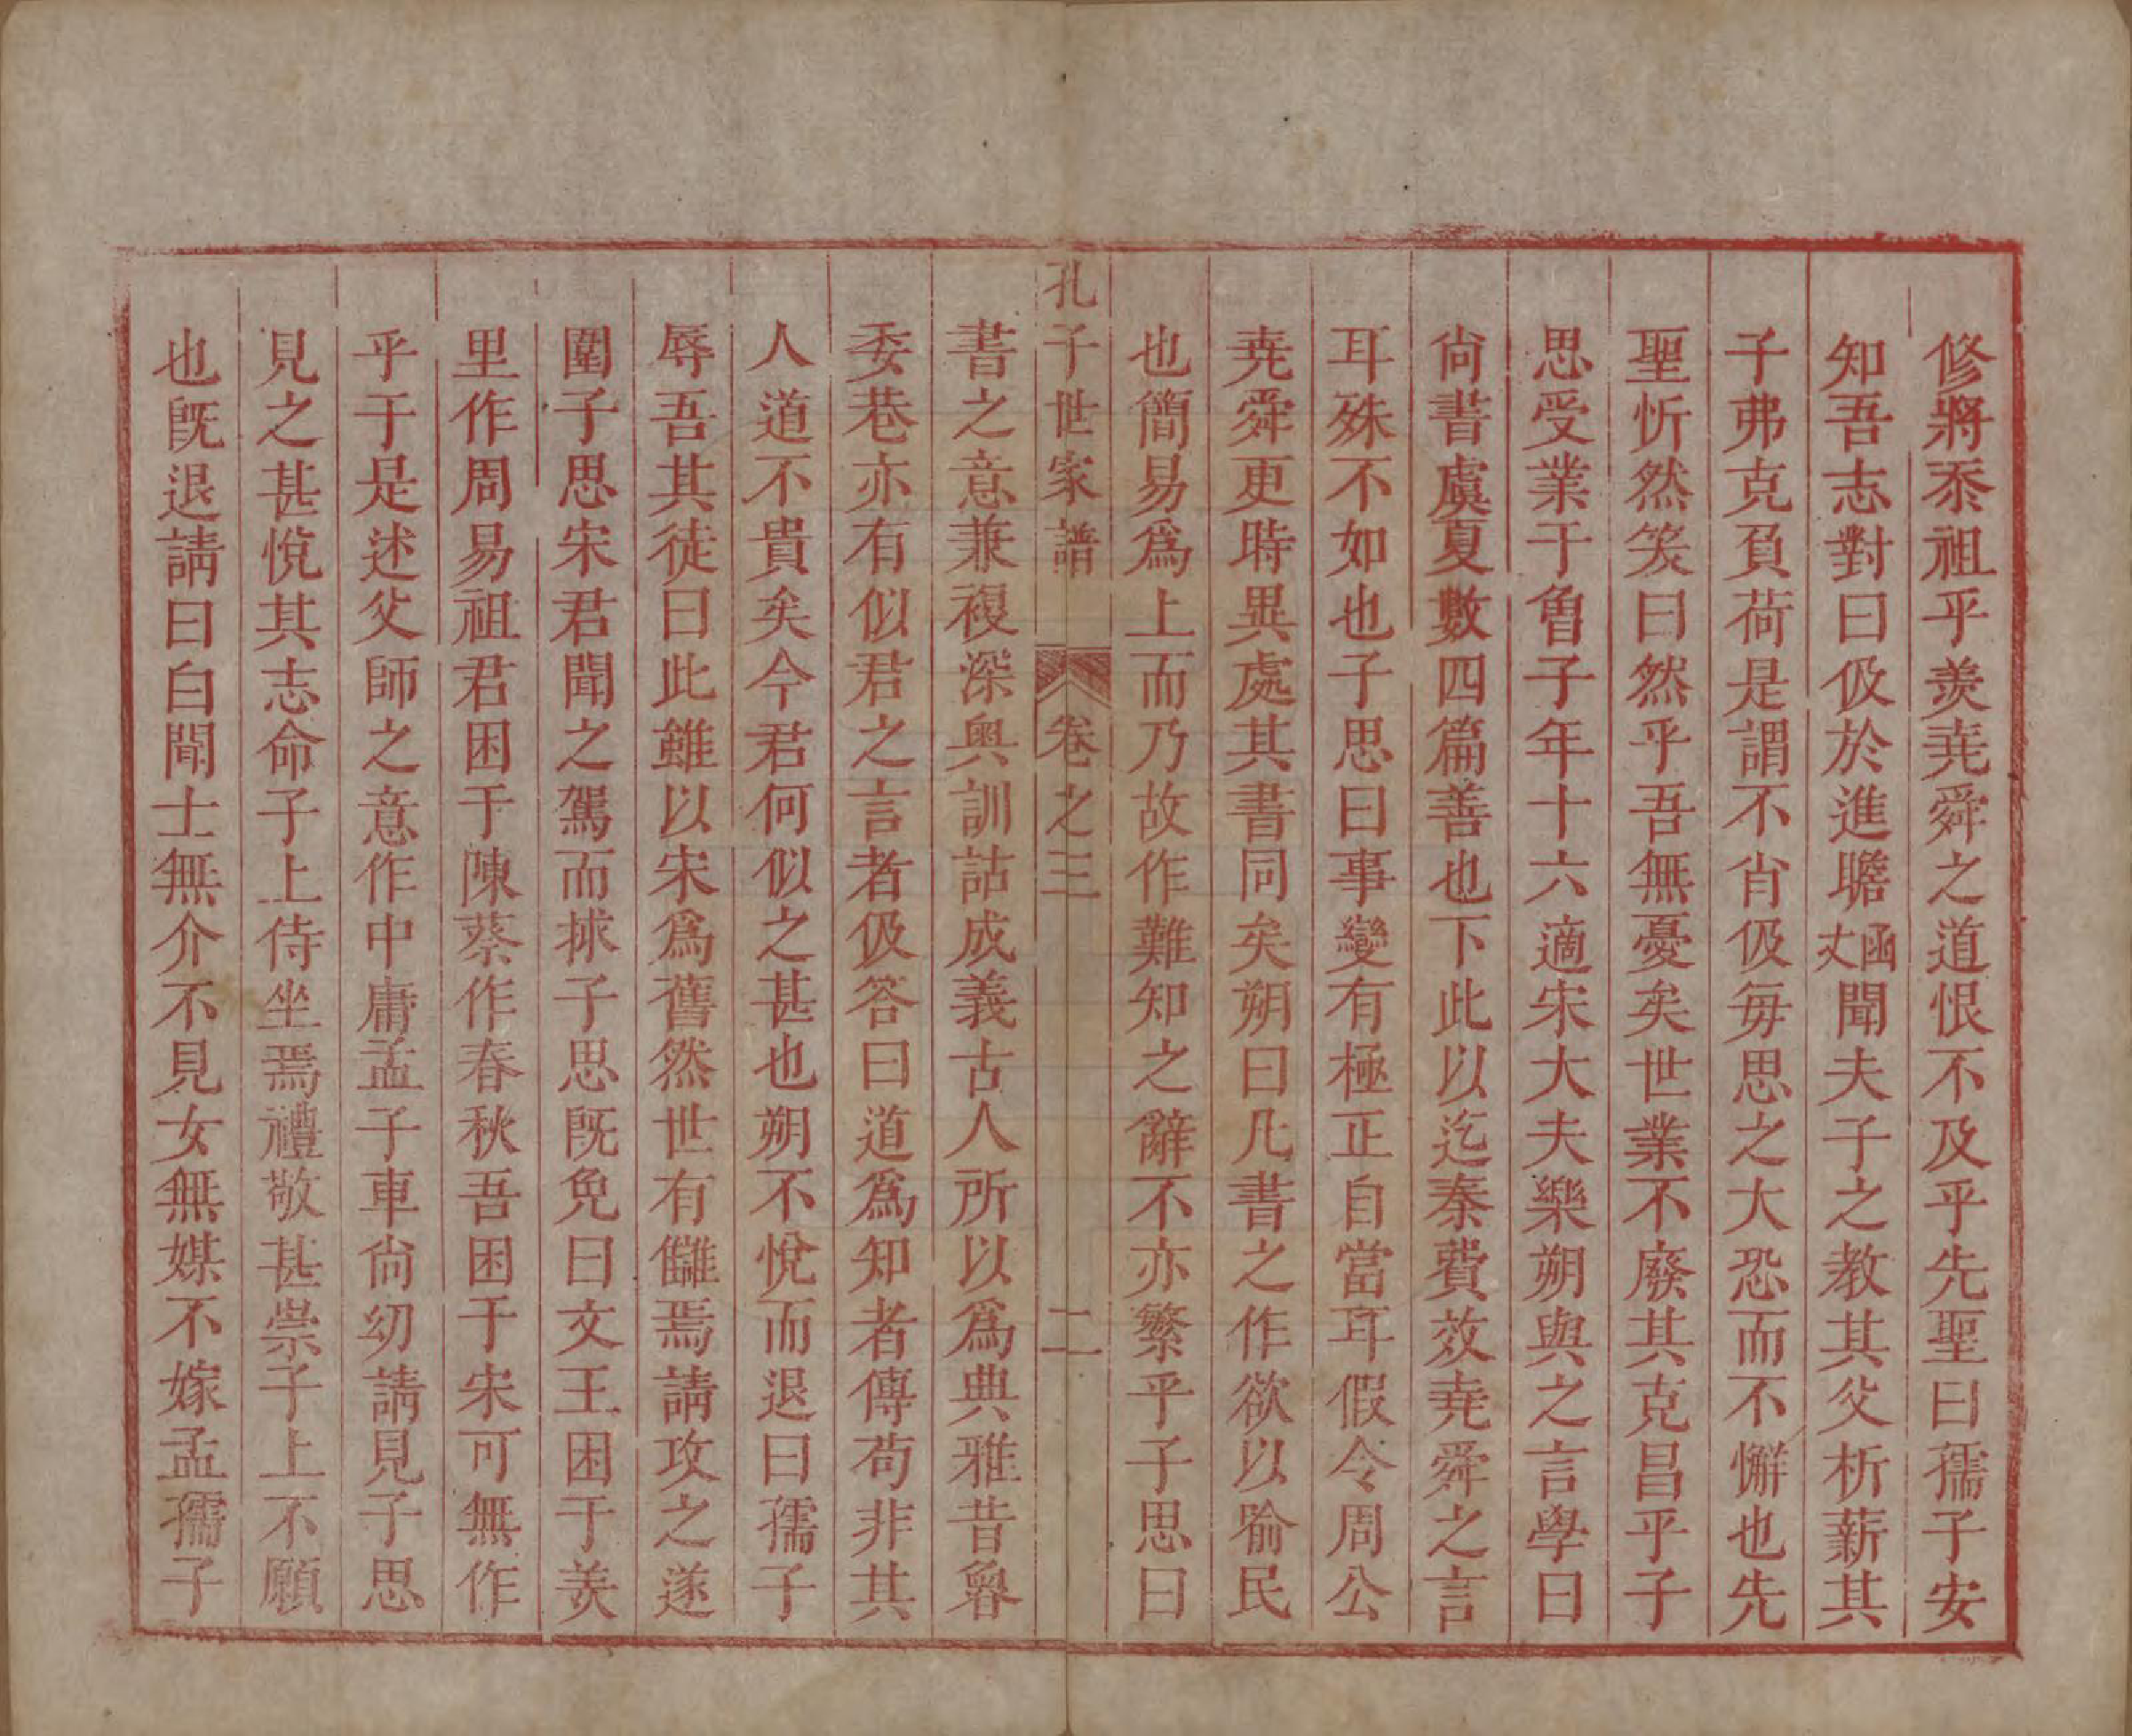 修將忝祖乎羨堯舜之道恨不及乎先聖曰孺子安
知吾志對曰伋於進瞻函丈聞夫子之教其父析薪其
子弗克負荷是謂不肖伋每思之大恐而不懈也先
聖忻然笑曰然乎吾無憂矣世業不廢其克昌乎子
思受業于魯子年十六適宋大夫樂朔與之言學曰
尙書虞夏數四篇善也下此以迄秦費效堯舜之言
耳殊不如也子思曰事變有極正自當耳假令周公
堯舜更時異處其書同矣朔曰凡書之作欲以喻民
也簡易爲上而乃故作難知之辭不亦繁乎子思曰
孔子世家譜 卷之三 二
書之意兼複深奧訓詁成義古人所以爲典雅昔魯
委巷亦有似君之言者伋答曰道爲知者傳苟非其
人道不貴矣今君何似之甚也朔不悅而退曰孺子
辱吾其徒曰此雖以宋爲舊然世有讎焉請攻之遂
圍子思宋君聞之駕而捄子思旣免曰文王困于羑
里作周易祖君困于陳蔡作春秋吾困于宋可無作
乎于是述父師之意作中庸孟子車尙幼請見子思
見之甚悅其志命子上侍坐焉禮敬甚崇子上不願
也旣退請曰白聞士無介不見女無媒不嫁孟孺子